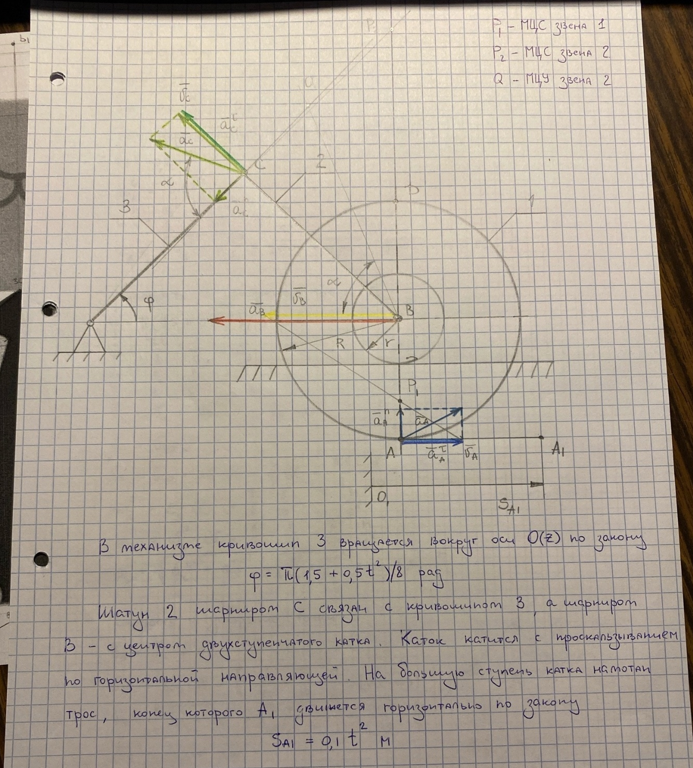 P₁ - МЦС звена 1
P₂ - МЦС звена 2
Q - МЦУ звена 2
P₂
Q
v̄c
āc^τ
āc
C
2
α
āc^n
3
D
1
α
φ
āB
v̄B
B
R
r
P₁
āA^n
āA
A
āA^τ
v̄A
A₁
O₁
SA₁
В механизме кривошип 3 вращается вокруг оси O(z) по закону
φ = π(1,5 + 0,5t²)/8 рад
Шатун 2 шарниром C связан с кривошипом 3, а шарниром
B - с центром двухступенчатого катка. Каток катится с проскальзыванием
по горизонтальной направляющей. На большую ступень катка намотан
трос, конец которого A₁ движется горизонтально по закону
SA1 = 0,1 t² м